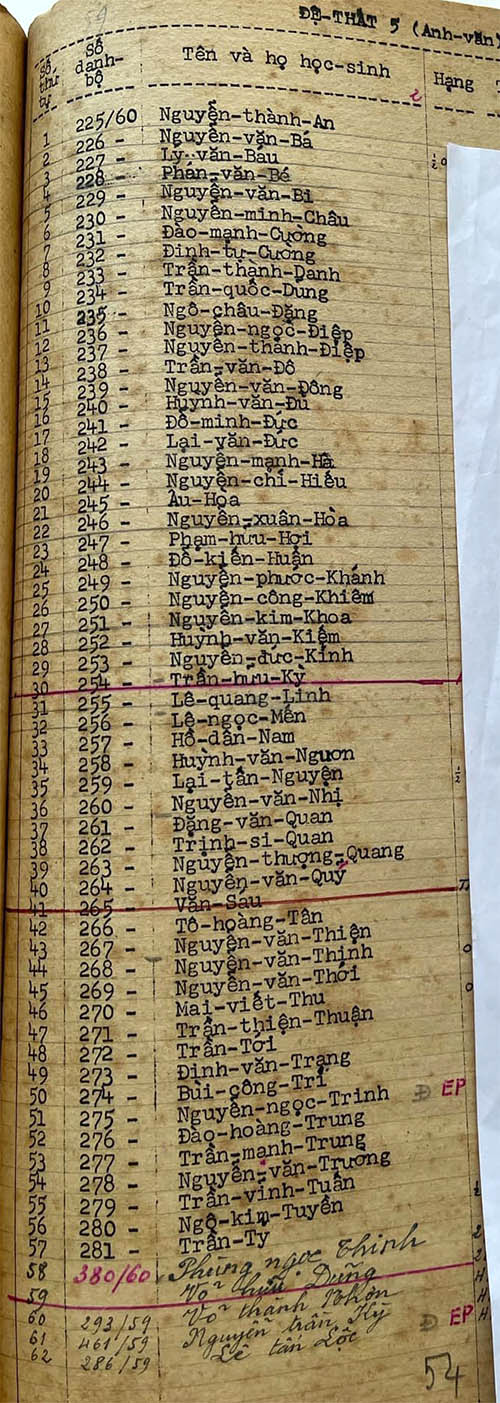 ĐỆ-THẤT 5 (Anh-văn)
Số thứ tự Số danh-bộ Tên và họ học-sinh Hạng
1 225/60 Nguyễn-thành-An
2 226 - Nguyễn-văn-Bá
3 227 - Lý-văn-Báu
4 228 - Phan-văn-Bé
5 229 - Nguyễn-văn-Bi
6 230 - Nguyễn-minh-Châu
7 231 - Đào-mạnh-Cường
8 232 - Đinh-tự-Cường
9 233 - Trần-thanh-Danh
10 234 - Trần-quốc-Dung
11 235 - Ngô-châu-Đặng
12 236 - Nguyễn-ngọc-Điệp
13 237 - Nguyễn-thành-Điệp
14 238 - Trần-văn-Đô
15 239 - Nguyễn-văn-Đông
16 240 - Huỳnh-văn-Đủ
17 241 - Đỗ-minh-Đức
18 242 - Lại-văn-Đức
19 243 - Nguyễn-mạnh-Hà
20 244 - Nguyễn-chí-Hiếu
21 245 - Âu-Hòa
22 246 - Nguyễn-xuân-Hòa
23 247 - Phạm-hữu-Hợi
24 248 - Đỗ-kiến-Huận
25 249 - Nguyễn-phước-Khánh
26 250 - Nguyễn-công-Khiêm
27 251 - Nguyễn-kim-Khoa
28 252 - Huỳnh-văn-Kiếm
29 253 - Nguyễn-đức-Kính
30 254 - Trần-hưu-Kỳ
31 255 - Lê-quang-Linh
32 256 - Lê-ngọc-Mến
33 257 - Hồ-dân-Nam
34 258 - Huỳnh-văn-Ngươn
35 259 - Lại-tấn-Nguyện
36 260 - Nguyễn-văn-Nhị
37 261 - Đặng-văn-Quan
38 262 - Trịnh-si-Quan
39 263 - Nguyễn-thượng-Quang
40 264 - Nguyễn-văn-Quý
41 265 - Văn-Sáu
42 266 - Tô-hoàng-Tân
43 267 - Nguyễn-văn-Thiện
44 268 - Nguyễn-văn-Thịnh
45 269 - Nguyễn-văn-Thới
46 270 - Mai-viết-Thu
47 271 - Trần-thiện-Thuận
48 272 - Trần-Tới
49 273 - Đinh-văn-Trạng
50 274 - Bùi-công-Trí Đ EP
51 275 - Nguyễn-ngọc-Trinh
52 276 - Đào-hoàng-Trung
53 277 - Trần-mạnh-Trung
54 278 - Nguyễn-văn-Trương
55 279 - Trần-vĩnh-Tuấn
56 280 - Ngô-kim-Tuyền
57 281 - Trần-Tỷ
58 380/60 Phùng ngọc Thinh
59 Võ hữu Dũng
60 293/59 Võ thành Nhơn
61 461/59 Nguyễn trần Kỳ Đ EP
62 286/59 Lê tấn Lộc
54